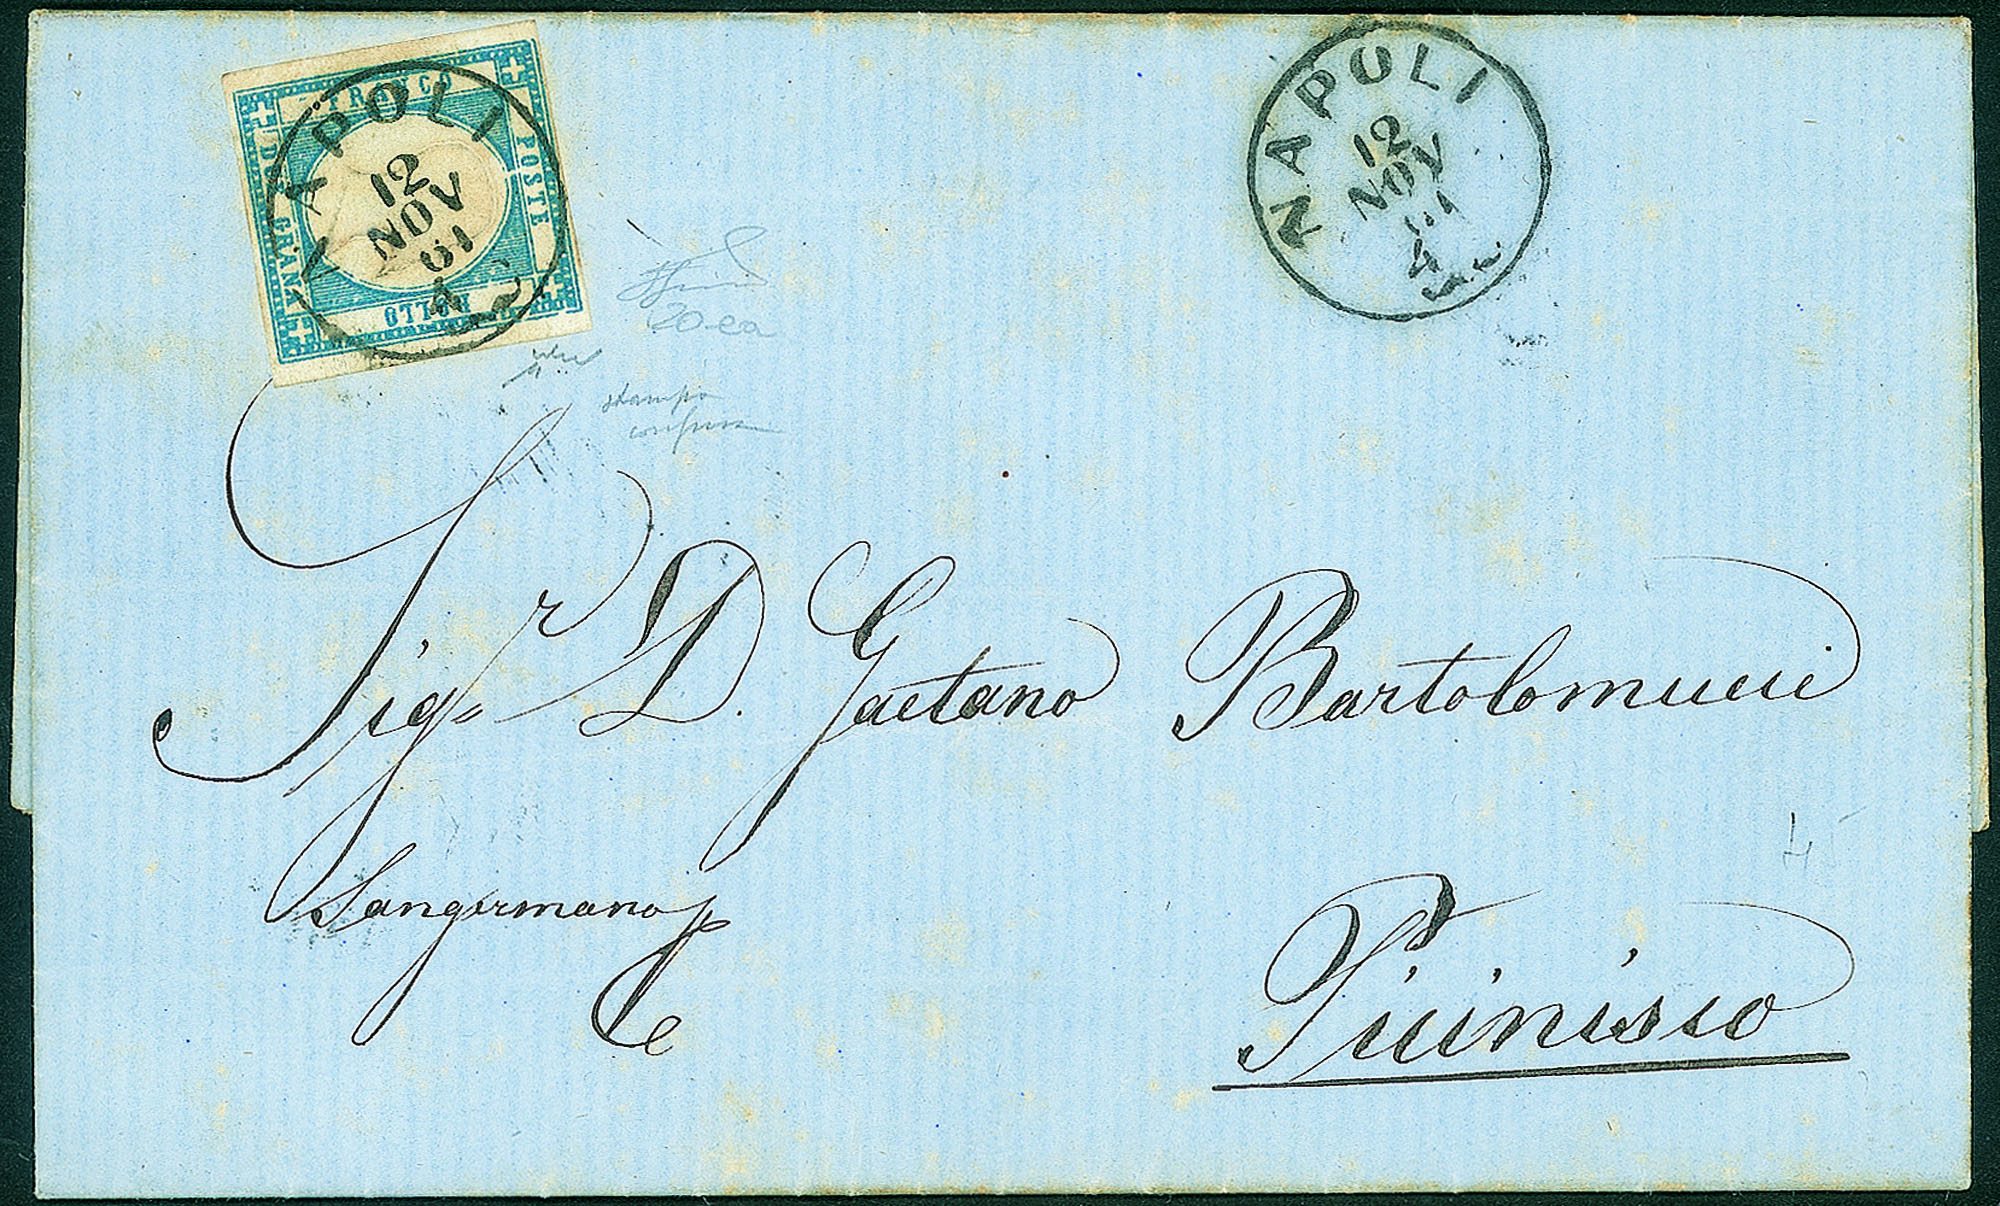 FRANCO
POSTE
BOLLO
GRANA
NAPOLI
12
NOV
61
4
NAPOLI
12
NOV
61
4
20 ca
stampa
confusa
Sigr D. Gaetano Bartolomucci
Sangermano p
Picinisco
4